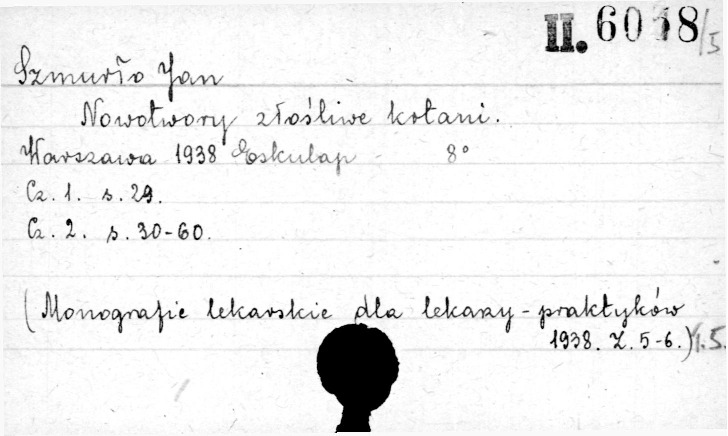 II. 6018/5
Szmurło Jan
Nowotwory złośliwe krtani.
Warszawa 1938 Eskulap - 8°
Cz. 1. s. 29.
Cz. 2. s. 30-60.
(Monografie lekarskie dla lekarzy-praktyków
1938. Z. 5-6.) t. 5.